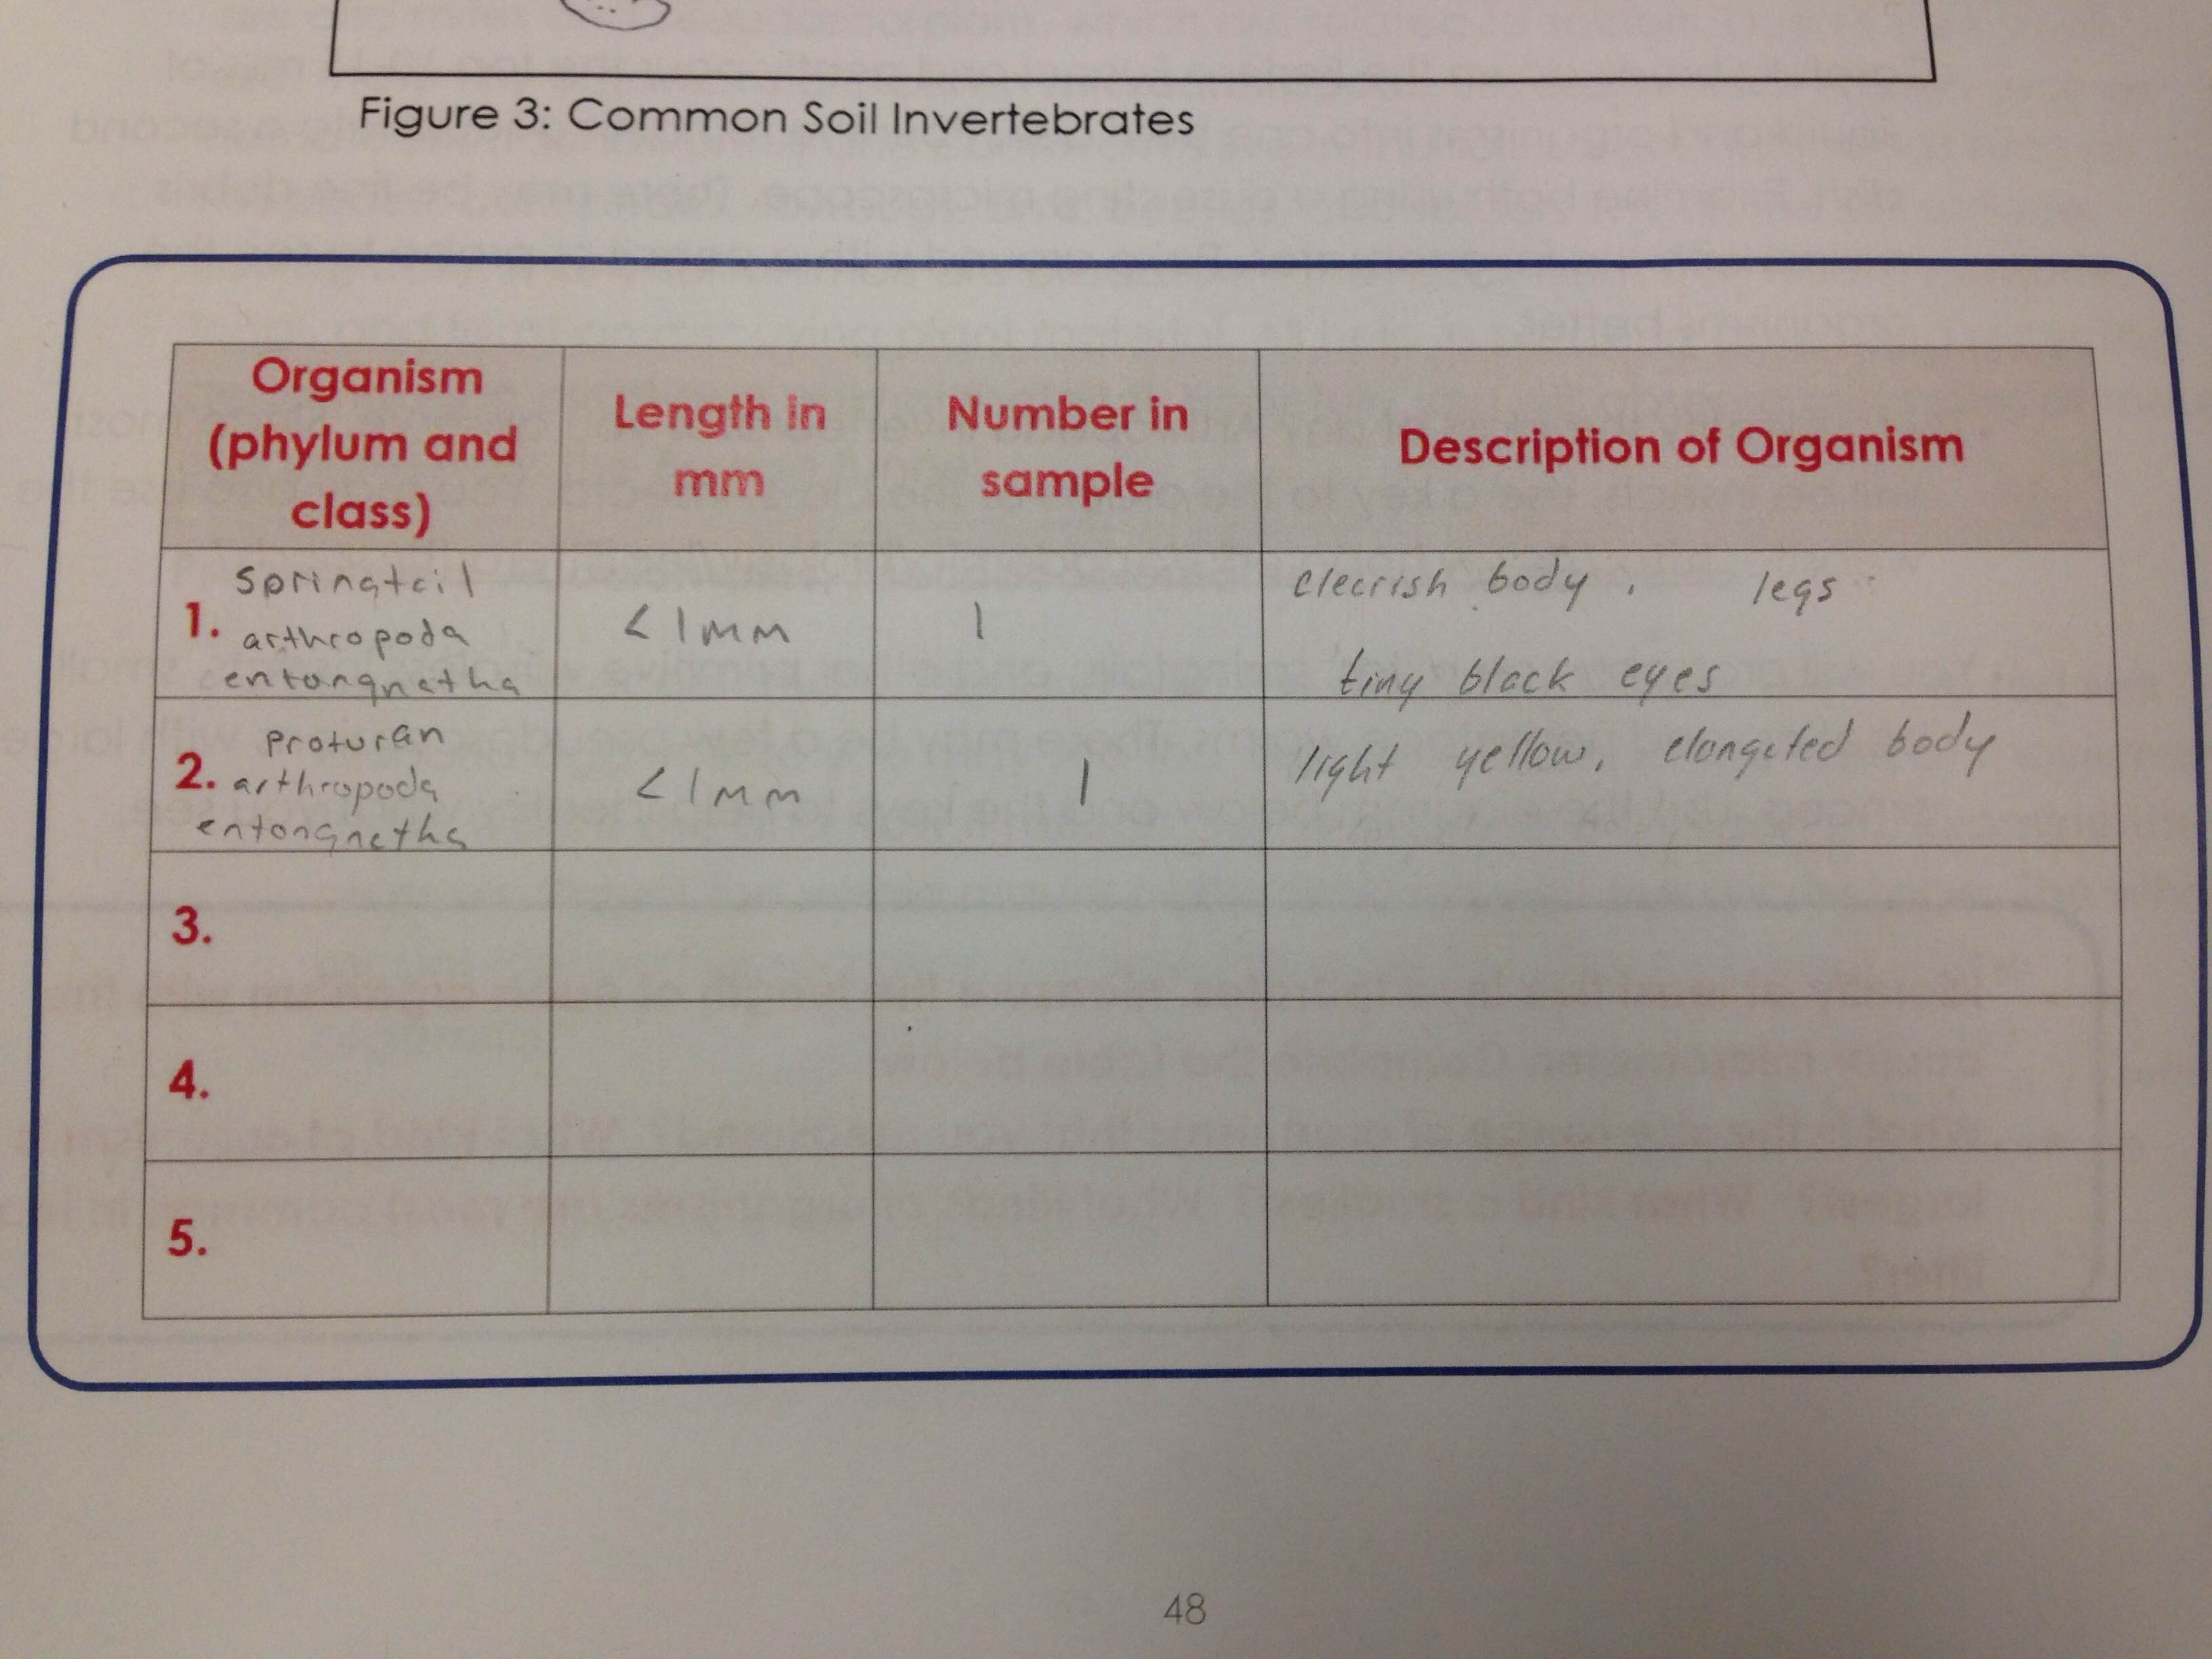 Figure 3: Common Soil Invertebrates
Organism
(phylum and
class)
Length in
mm
Number in
sample
Description of Organism
1.
Springtail
arthropoda
entongnatha
< 1mm
1
clearish body, legs
tiny black eyes
2.
Proturan
arthropoda
entongnatha
< 1mm
1
light yellow, elongated body
3.
4.
5.
48